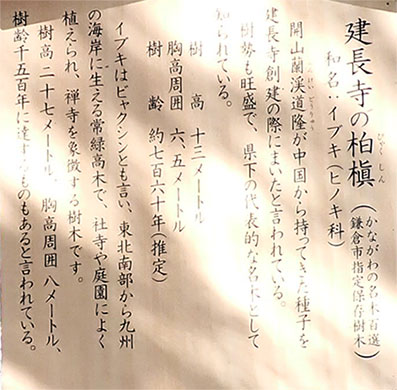 建長寺の柏槇（かながわの名木百選
びゃくしん
鎌倉市指定保存樹木）
和名：イブキ（ヒノキ科）
開山蘭渓道隆が中国から持ってきた種子を
らんけいどうりゅう
建長寺創建の際にまいたと言われている。
樹勢も旺盛で、県下の代表的な名木として
知られている。
樹　高　十三メートル
胸高周囲　六、五メートル
樹　齢　約七百六十年（推定）
イブキはビャクシンとも言い、東北南部から九州
の海岸に生える常緑高木で、社寺や庭園によく
植えられ、禅寺を象徴する樹木です。
樹高二十七メートル、胸高周囲八メートル、
樹齢千五百年に達するものもあると言われている。